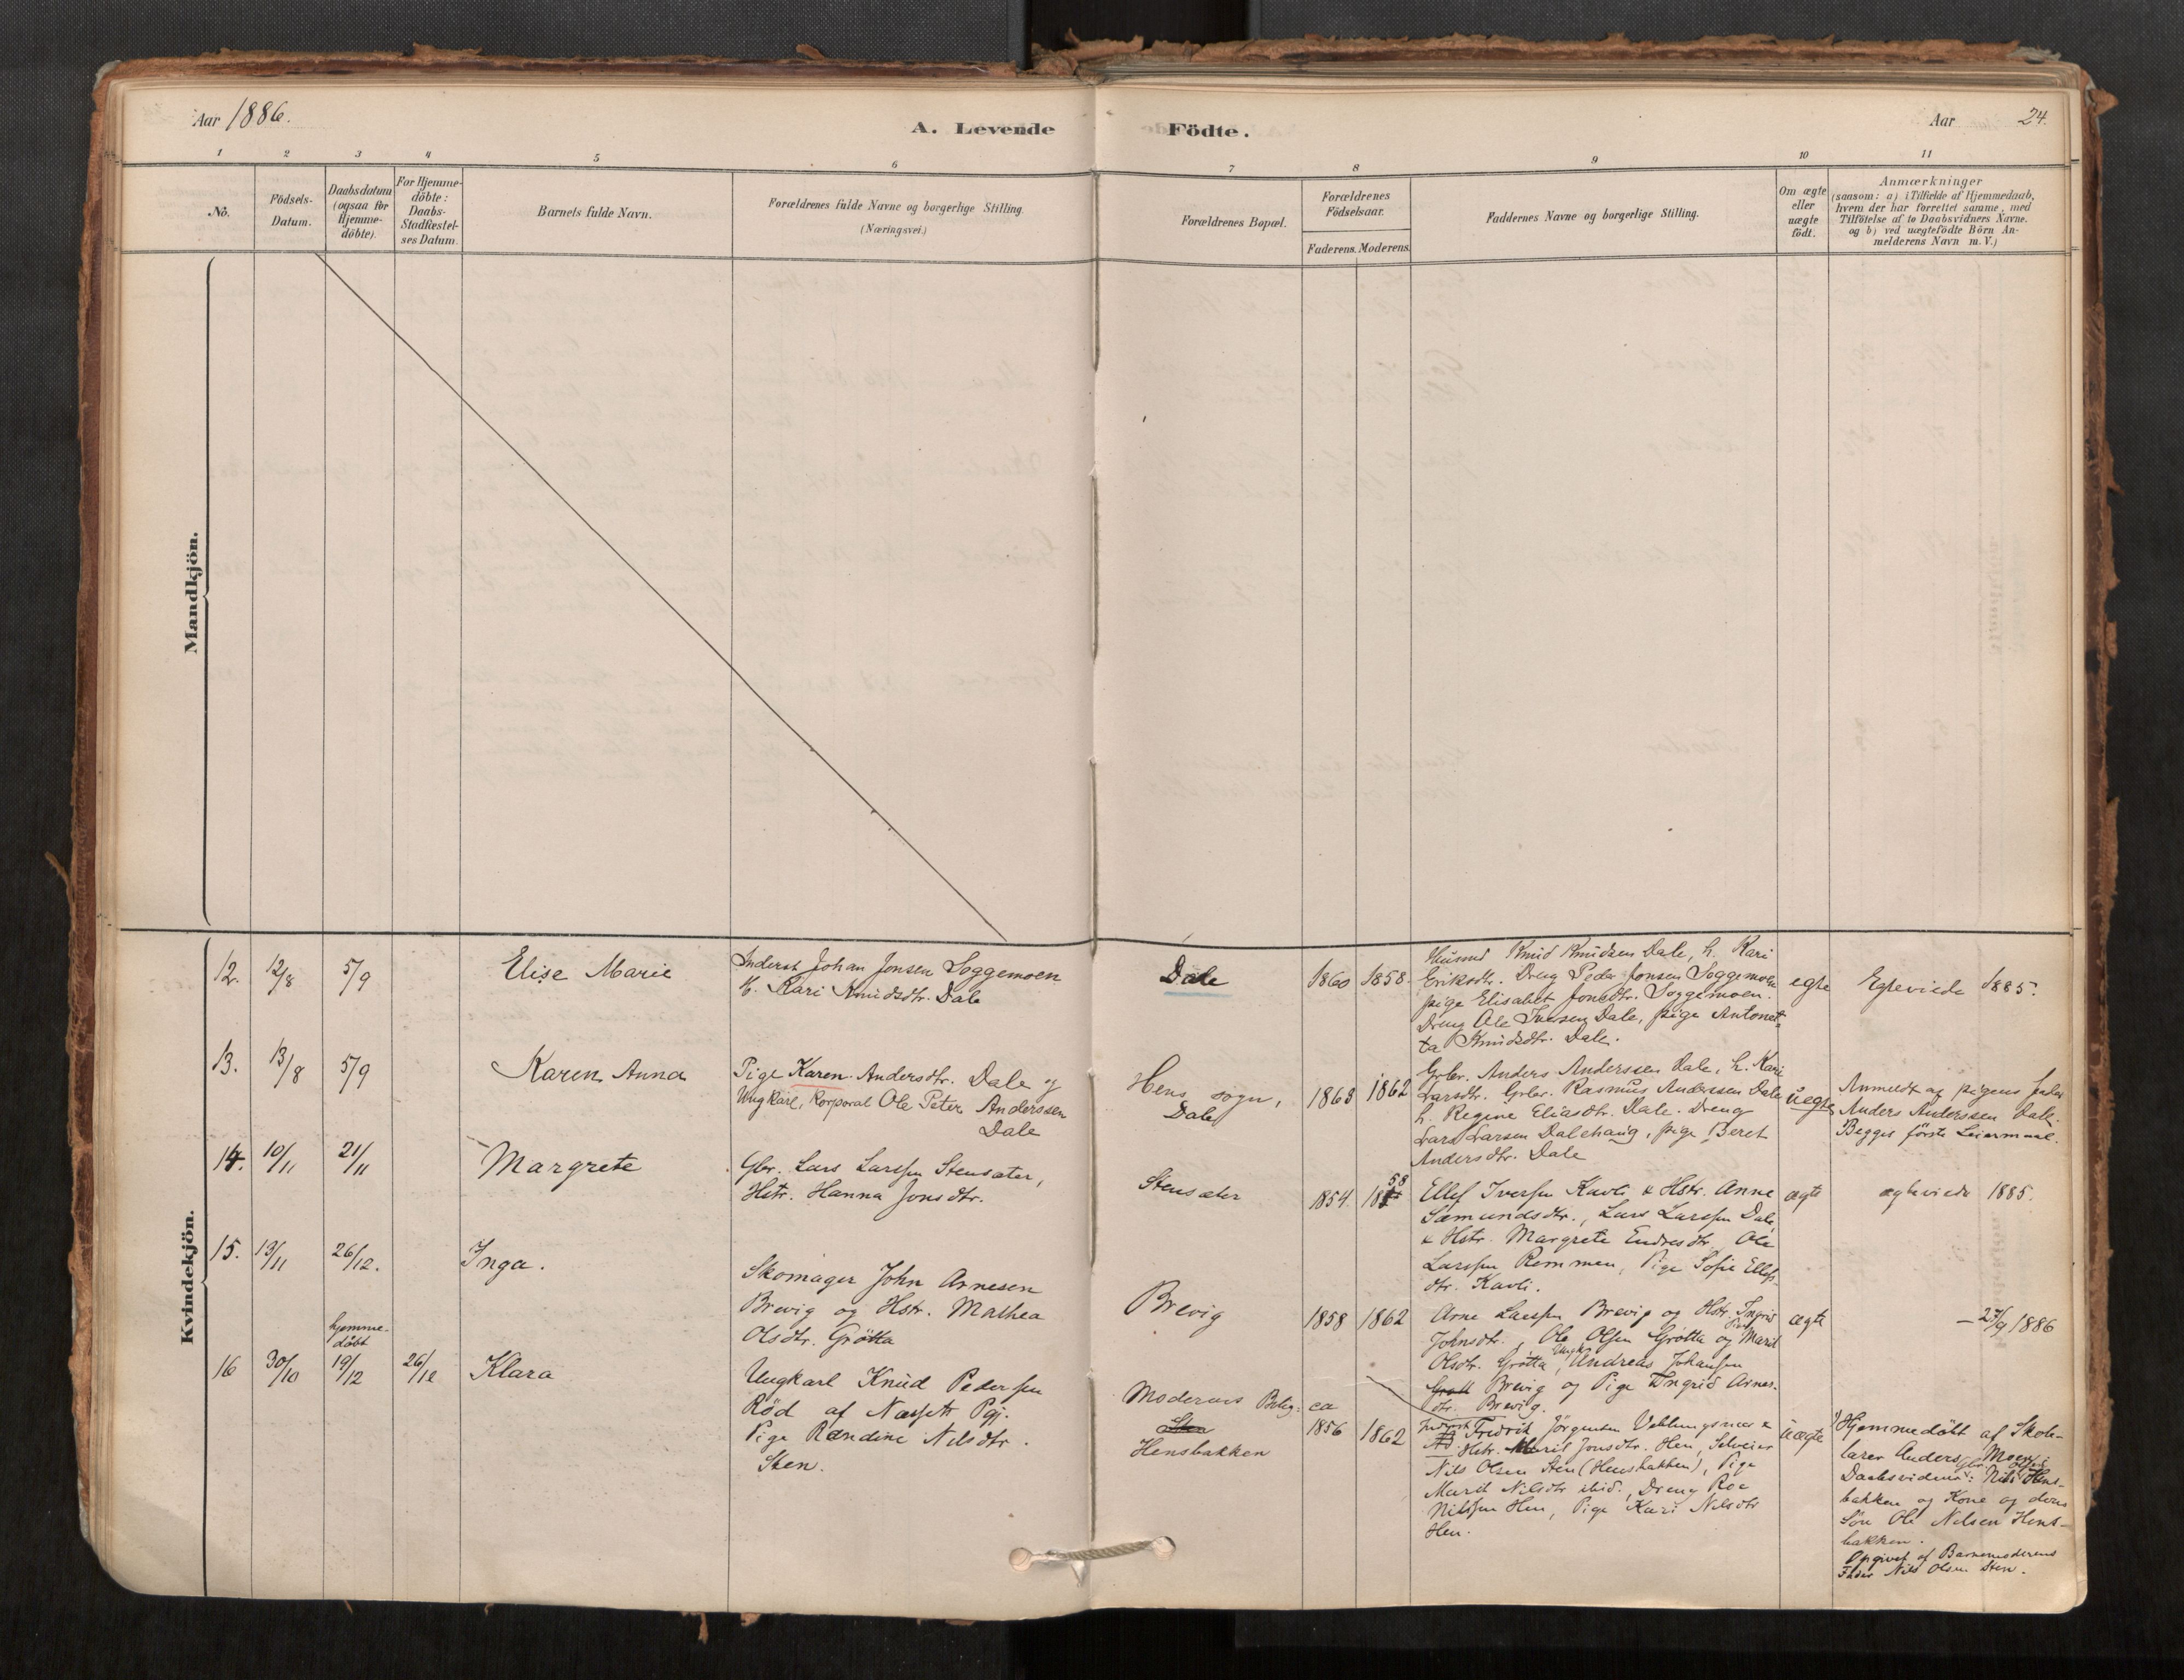 Aar 1886.
A. Levende Födte.
Aar 24.
1 2 3 4 5 6 7 8 9 10 11
No.
Födsels-
Datum.
Daabsdatum
(ogsaa for
Hjemme-
döbte).
For Hjemme-
döbte:
Daabs-
Stadfæstel-
ses Datum.
Barnets fulde Navn.
Forældrenes fulde Navne og borgerlige Stilling.
(Næringsvei.)
Forældrenes Bopæl.
Forældrenes
Födselsaar.
Faderens. Moderens.
Faddernes Navne og borgerlige Stilling.
Om ægte
eller
uægte
födt.
Anmærkninger
(saasom: a) i Tilfælde af Hjemmedaab,
hvem der har forrettet samme, med
Tilföielse af to Daabsvidners Navne.
og b) ved uægtefödte Börn An-
melderens Navn m. V.)
Mandkjön.
Kvindekjön.
12. 12/8 5/9 Elise Marie
Inderst Johan Jonsen Soggemoen
h. Kari Knudsdtr. Dale
Dale
1860 1858.
Knud Knudsen Dale, h. Kari
Eriksdtr. Dreng Peder Jonsen Soggemoen
pige Elisabet Jonsdtr. Soggemoen.
Dreng Ole Iversen Dale, pige Antonet-
ta Knudsdtr. Dale.
egte
Egteviede 1885.
13. 13/8 5/9 Karen Anna
Pige Karen Andersdtr. Dale og
Ungkarl, Korporal Ole Peter Anderssen
Dale
Hens sogn,
Dale
1863 1862
Grbr. Anders Anderssen Dale, h. Kari
Larsdtr. Grbr. Rasmus Anderssen Dale
h. Regine Eliasdtr. Dale. Dreng
Lars Larsen Dalehaug, pige Beret
Andersdtr. Dale
uegte
Anmeldt af pigens fader
Anders Anderssen Dale.
Begges første Leiermaal.
14. 10/11 21/11 Margrete
Gbr. Lars Larssen Stensæter,
Hstr. Hanna Jonsdtr.
Stensæter
1854. 1858
Ellef Iversen Kavli & Hstr. Anne
Sæmundsdtr., Lars Larssen Dale,
& Hstr. Margrete Endresdtr, Ole
Larssen Remmen, Pige Sofie Ellefs-
dtr. Kavli.
ægte
ægteviede 1885.
15. 13/11 26/12. Inga.
Skomager John Arnesen
Brevig og Hstr. Mathea
Olsdtr. Grötta
Brevig
1858 1862
Arne Larssen Brevig og Hstr. Ingrid
Johnsdtr., Ole Olsen Grötta og Marit
Olsdtr. Grötta, Ungk. Andreas Johansen
Brevig og Pige Ingrid Arnes-
dtr. Brevig.
ægte
— 27/9 1886
hjemme-
döbt
16 30/10 19/12 26/12 Klara
Ungkarl Knud Pedersen
Röd af Næssets Pgj.
Pige Randine Nilsdtr.
Sten.
Moderens Bolig:
Sten
Hensbakken
ca
1856 1862
Inderst Fredrik Jörgensen Veblungsnes &
Hstr. Marit Jonsdtr. Hen, Selveier
Nils Olsen Sten (Hensbakken), Pige
Marit Nilsdtr ibid., Dreng Roe
Nilssen Hen, Pige Kari Nilsdtr
Hen.
uægte
Hjemmedöbt af Skole-
lærer Anders Moen.
Daabsvidner: Gbr. Nils Olsen Hens-
bakken og Kone og deres
Sön Ole Nilsen Hens-
bakken.
Opgivet af Barnemoderens
Fader Nils Olsen Sten.